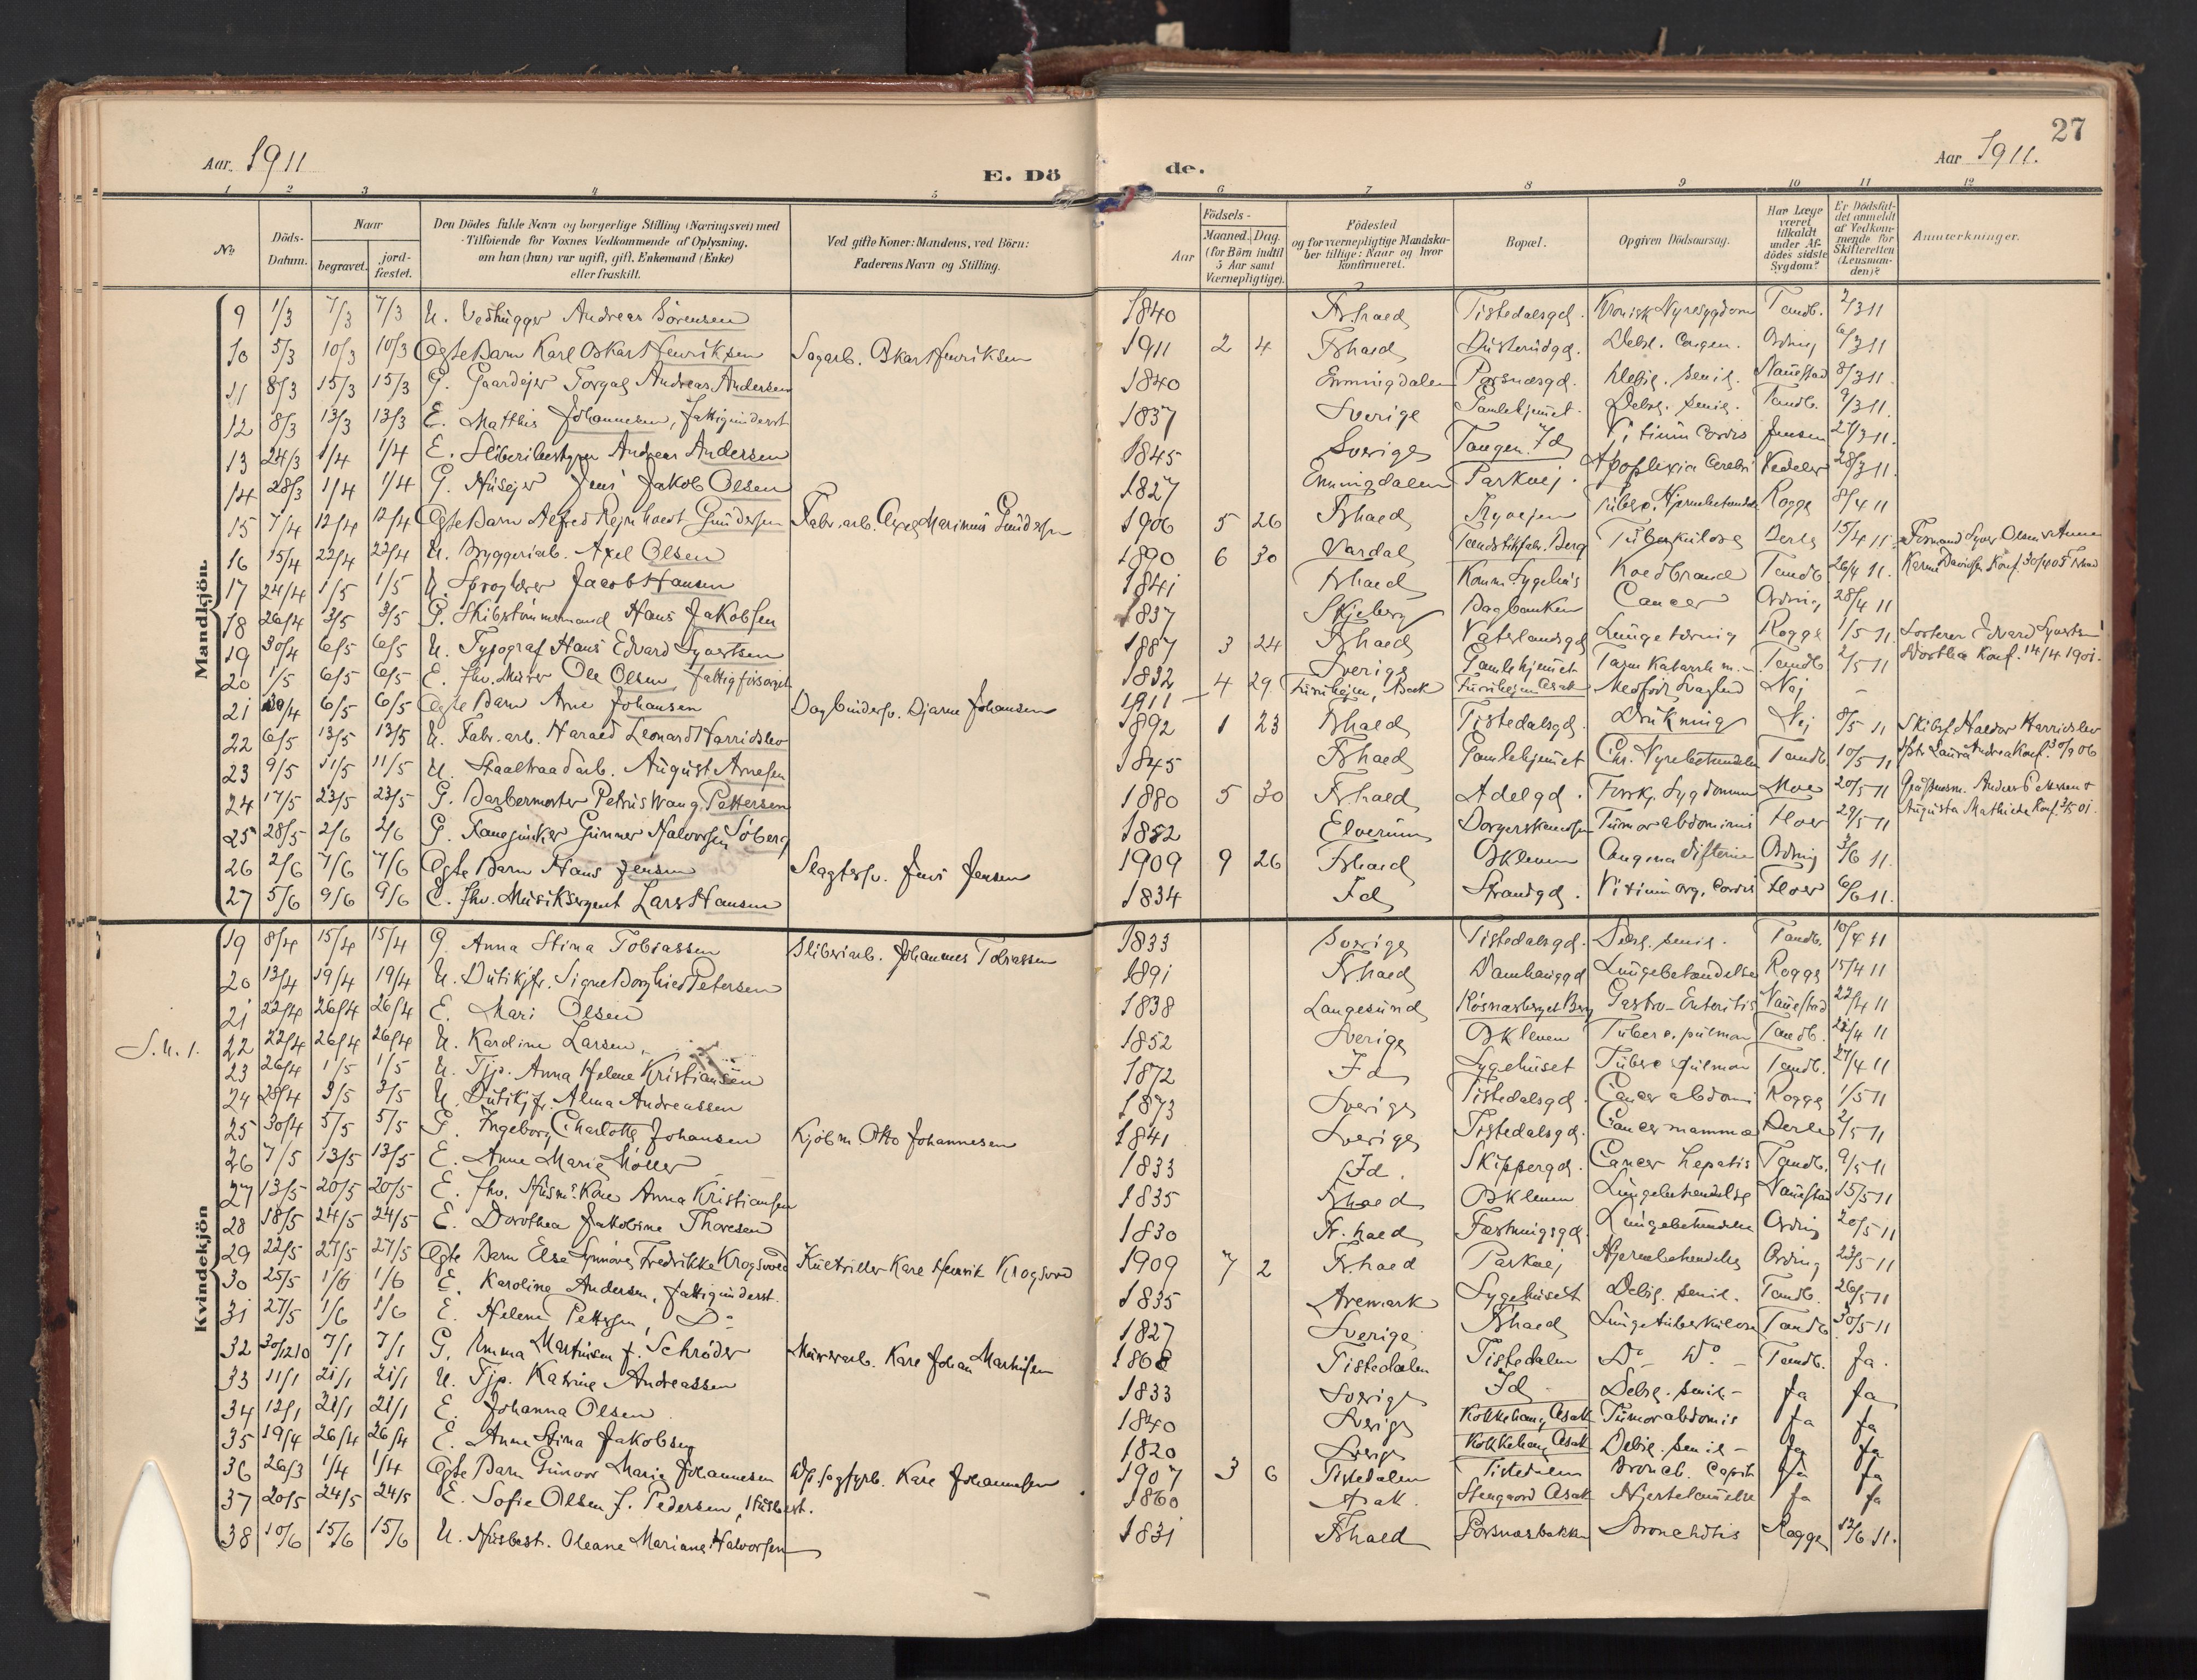 27
Aar 1911
E. Dö de.
Aar 1911.
1 2 3 4 5 6 7 8 9 10 11 12
No
Döds-Datum.
Naar
begravet.
jord-fæstet.
Den Dödes fulde Navn og borgerlige Stilling (Næringsvei) med
Tilföiende for Voxnes Vedkommende af Oplysning,
om han (hun) var ugift, gift, Enkemand (Enke)
eller fraskilt.
Ved gifte Koner: Mandens, ved Börn:
Faderens Navn og Stilling.
Födsels-
Aar
Maaned. Dag.
(for Börn indtil
5 Aar samt
Værnepligtige).
Födested
og for værnepligtige Mandska-
ber tillige: Naar og hvor
konfirmeret.
Bopæl.
Opgiven Dödsaarsag.
Har Læge
været
tilkaldt
under Af-
dödes sidste
Sygdom?
Er Dödsfal-
det anmeldt
af Vedkom-
mende for
Skifteretten
(Lensman-
den)?
Anmerkninger.
Mandkjön
9 1/3 7/3 7/3 U. Vedhugger Andreas Sörensen 1840 Fr.hald Tistedalsgd. Kronisk Nyresygdom Tandb. 2/3 11
10 5/3 10/3 10/3 Ægte Barn Karl Oskar Henriksen Sagarb. Oskar Henriksen 1911 2 4 Frhald Debil. Congen. Ording 6/3 11
11 8/3 15/3 15/3 G. Gaardejer Torgal Andreas Andersen 1840 Enningdalen Porsnæsgd. Debil. senil. Nauestad 8/3 11.
12 8/3 13/3 13/3 E. Matthis Johannesen, fattigunderst 1837 Sverige Gamlehjemmet Debil. senil. Tandb. 9/3 11.
13 24/3 1/4 1/4 E. Sliberibestyrer Andreas Andersen 1845 Sverige Tangen. Id Vitium Cordis Jensen 27/3 11.
14 28/3 1/4 1/4 G. Husejer Jens Jakob Olsen 1827 Enningdalen Parkvej. Apoplexia Cerebri Vedeler 28/3 11.
15 7/4 12/4 12/4 Ægte Barn Alfred Reinhardt Gundersen Fabr. arb. Axel Marinius Gundersen 1906 5 26 Frhald Tuberc. Hjernebetændelse Rogge 8/4 11
16 15/4 22/4 22/4 U. Bryggeriarb. Axel Olsen 1890 6 30 Vardal Tændstikfabr. Berg Tuberkulose 15/4 11 Formand Syver Olsen & Anne
Karine Davidsen Konf. 30/4 05 Frhald
17 24/4 1/5 1/5 U. Sproglærer Jacob Hansen 1841 Frhald Komm. Sygehus Koldbrand Tandb 26/4 11.
18 26/4 3/5 3/5 G. Skibstømmermand Hans Jakobsen 1837 Skjeberg Bagbanken Cancer Ording 28/4 11
19 30/4 6/5 6/5 U. Typograf Hans Edvard Syvertsen 1887 3 24 Frhald Vaterlandsgd Lungetæring Rogge 1/5 11. Sorterer Edvard Syvertsen
Dorthea Konf. 14/4 1901.
20 1/5 6/5 6/5 E. fhv. Murer Ole Olsen, fattigforsørget 1832 Sverige Gamlehjemmet Tarm Katarrh m.- Tandb 2/5 11
21 30/4 6/5 6/5 Ægte Barn Arne Johansen Dagbindersv. Bjarne Johansen 1911 4 29 Furuhejm, Asak Furuhejm Asak Medfødt Svaghed Nej -
22 6/5 13/5 13/5 U. Fabr. arb. Harald Leonard Harridslev 1892 1 23 Frhald Tistedalsgd. Drukning Nej 8/5 11 Skibsf. Haldor Harridslev
23 9/5 11/5 11/5 U. Staaltraadarb. August Arnesen 1845 Frhald Gamlehjemmet Chr. Nyrebetændelse Tandb 10/5 11
24 17/5 23/5 23/5 G. Barbermester Petrus Wang Pettersen 1880 5 30 Frhald Adelgd. Forskj. Sygdomme Moe 20/5 11
Augusta Mathilde Konf.
25 28/5 2/6 2/6 G. Fanejunker Gunner Halvorsen Söberg 1852 Elverum Tumor abdominis Hoer 29/5 11
26 2/6 7/6 7/6 Ægte Barn Hans Jensen Slagtersv. Jens Jensen 1909 9 26 Frhald Oskleven Angina difterine Ording 3/6 11.
27 5/6 9/6 9/6 E. fhv. Musiksergent Lars Hansen 1834 Id Strandgd. Vitium org. Cordis Hoer 6/6 11.
Kvindekjön
19 8/4 15/4 15/4 G. Anna Stina Tobiassen Sliberiarb. Johannes Tobiassen 1833 Sverige Tistedalsgd. Debil. senil. Tandb. 10/4 11
20 13/4 19/4 19/4 U. Butikjfr. Signe Borghild Petersen 1891 Frhald Damhauggd Lungebetændelse Rogge 15/4 11
21 22/4 26/4 26/4 E. Mari Olsen 1838 Langesund Rösnæsberget Berg Gastro-Enteritis Nauestad 22/4 11
S.U.1. 22 22/4 26/4 26/4 U. Karoline Larsen 1852 Sverige Oskleven Tuberc. pulmon Tandb. 22/4 11
23 26/4 1/5 1/5 U. Tjp. Anna Helene Kristiansen 1872 Id Sygehuset Tuberc pulmon Tandb. 27/4 11
24 28/4 3/5 3/5 U. Butikjfr. Alma Andreassen 1873 Sverige Tistedalsgd. Cancer abdomi Rogge 1/5 11
25 30/4 5/5 5/5 G. Ingeborg Charlotte Johansen Kjöbm Otto Johannesen 1841 Sverige Tistedalsgd. Cancer mamma 2/5 11
26 7/5 13/5 13/5 E. Anne Marie Möller 1833 Id. Skippergd. Cancer hepatis Tandb. 9/5 11
27 13/5 20/5 20/5 E. fhv. Husms. Kone Anna Kristiansen 1835 Frhald Oskleven Lungebetændelse Nauestad 15/5 11
28 18/5 24/5 24/5 E. Dorothea Jakobine Thoresen 1830 Fr.hald Fæstningsgd. Lungebetændelse Ording 20/5 11
29 22/5 27/5 27/5 Ægte Barn Else Synnöve Fredrikke Krogsvold Karl Henrik Krogsvold 1909 7 2 Fr.hald Parkvej Hjernebetændelse Ording 23/5 11
30 25/5 1/6 1/6 E. Karoline Andersen, fattigunderst. 1835 Aremark Sygehuset Debil. senil. Tandb. 26/5 11
31 27/5 1/6 1/6 E. Helene Pettersen, Do 1827 Sverige Frhald Lungetuberkulose Tandb 30/5 11
32 30/12 10 7/1 7/1 G. Emma Martinsen f. Schröder Murerarb. Karl Johan Martinsen 1868 Tistedalen Tistedalen Do Do Tandb. Ja.
33 11/1 21/1 21/1 U. Tjp. Katrine Andreassen 1833 Sverige Id - Debil. senil - Ja Ja
34 12/1 21/1 21/1 E. Johanna Olsen 1840 Sverige Kokkehaug Asak Tumor abdomis Ja Ja
35 19/4 26/4 26/4 E. Anne Stina Jakobsen 1820 Sverige Kokkehaug Asak Debil. senil - Ja Ja
36 26/3 1/4 1/4 Ægte Barn Gunvor Marie Johannesen Karl Johannesen 1907 3 6 Tistedalen Tistedalen Bronch. Capil. Ja Ja
37 20/5 24/5 24/5 E. Sofie Olsen f. Pedersen, Husbest. 1860 Asak. Stengaard Asak Hjertelammelse Ja Ja
38 10/6 15/6 15/6 U. Husbest. Oleane Mariane Halvorsen 1831 Frhald Porsnæsbakken Bronchitis Rogge 12/6 11.